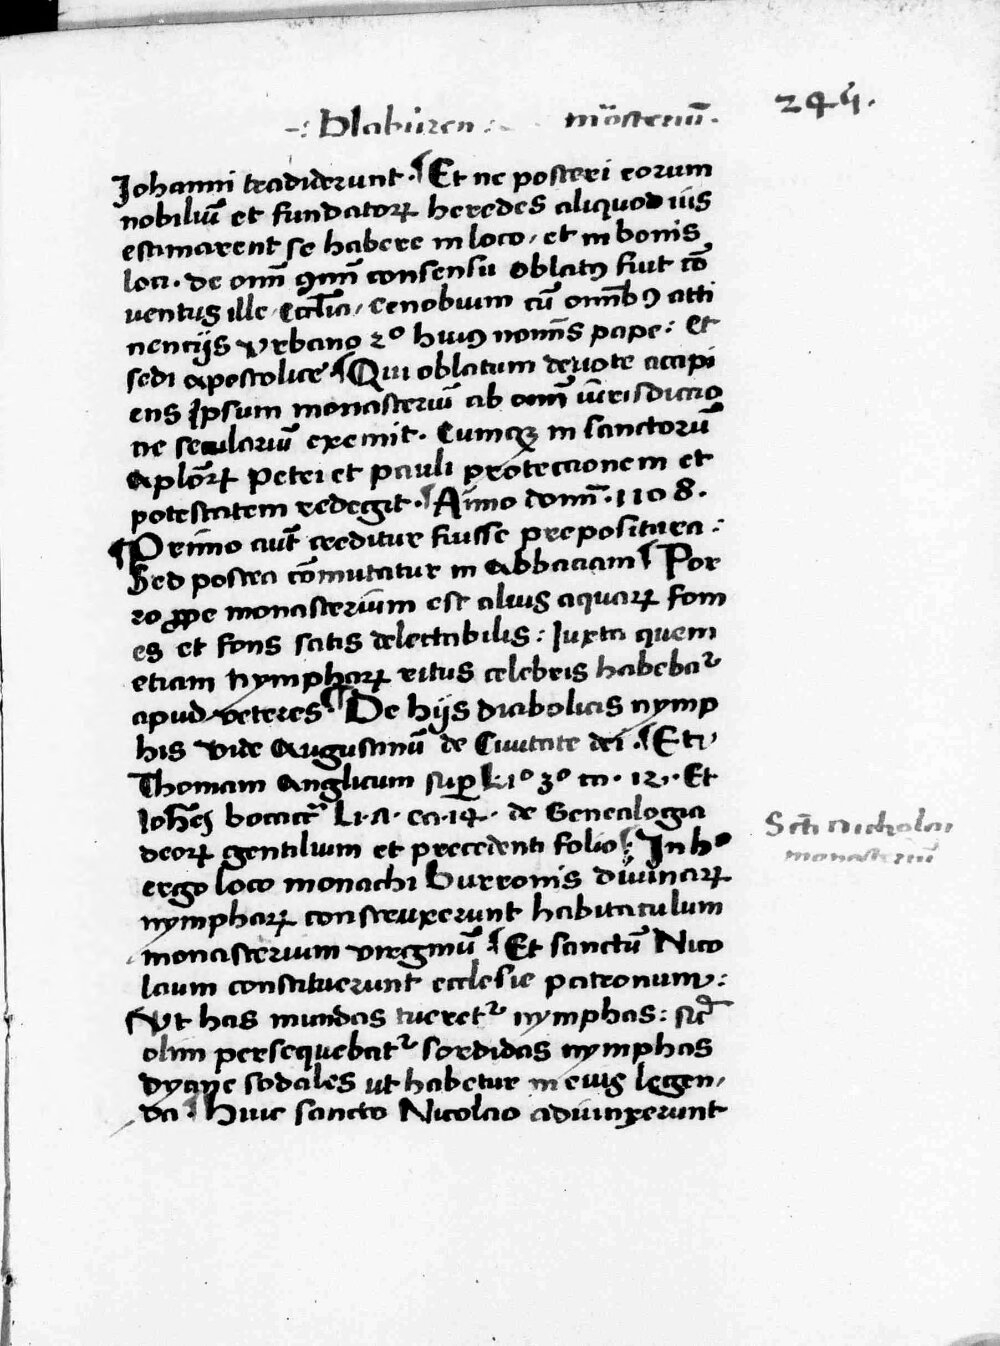 -: Blabúren :- mo̅steriu̅. 245.
Johanni tradiderunt. ¶ Et ne posteri eorum
nobiliu̅ et fundatoꝝ heredes aliquod ius
estimarent se habere in loco, et in bonis
loci. de omi̅ ꝯmi̅ consensu oblatꝰ fuit co̅
ventus ille, eccl̅ia, cenobium cu̅ omi̅bꝰ atti
nencijs Vrbano 2º huiꝰ nomi̅s pape: et
sedi apostolice ¶ Qui oblatum deuote accipi
ens Ipsum monasteriu̅ ab omi̅ iu̅risdictio
ne seculariu̅ exemit. Cumqꝫ in sanctoru̅
Aplo̅ꝝ Petri et pauli protectionem et
potestatem redegit. ¶ A̅nno domi̅. 1108.
¶ Primo aut̅ creditur fuisse prepositura:
Sed postea co̅mutatur in Abbaciam ¶ Por
ro ꝓpe monasteriu̅m est alius aquaꝝ fom
es et fons satis delectabilis: Iuxta quem
etiam Nymphaꝝ ritus celebris habebaᵗ
apud veteres ¶ De hijs diabolicis nymp
his vide Augustinu̅ de Ciuitate dei. ¶ Et
Thomam Anglicum suꝑ L 1º 3º ca. 12. Et
Joha̅es bocac̅ Li. A. ca. 14. de Genealogia
deoꝝ gentilium et precedenti folio ¶ In hº
ergo loco monachi Burronis diuinaꝝ
nymphaꝝ construxerunt habitaculum
monasterium virginu̅ ¶ Et sanctu̅ Nico
laum constituerunt ecclesie patronum:
Vt has mundas tueretᵗ nymphas: sic̅
olim persequebatᵗ sordidas nymphas
dyane sodales ut habetur in eius legen,
da. ¶ Huic sancto Nicolao adiunxerunt
Sct̅i Nicholai
monasteriu̅